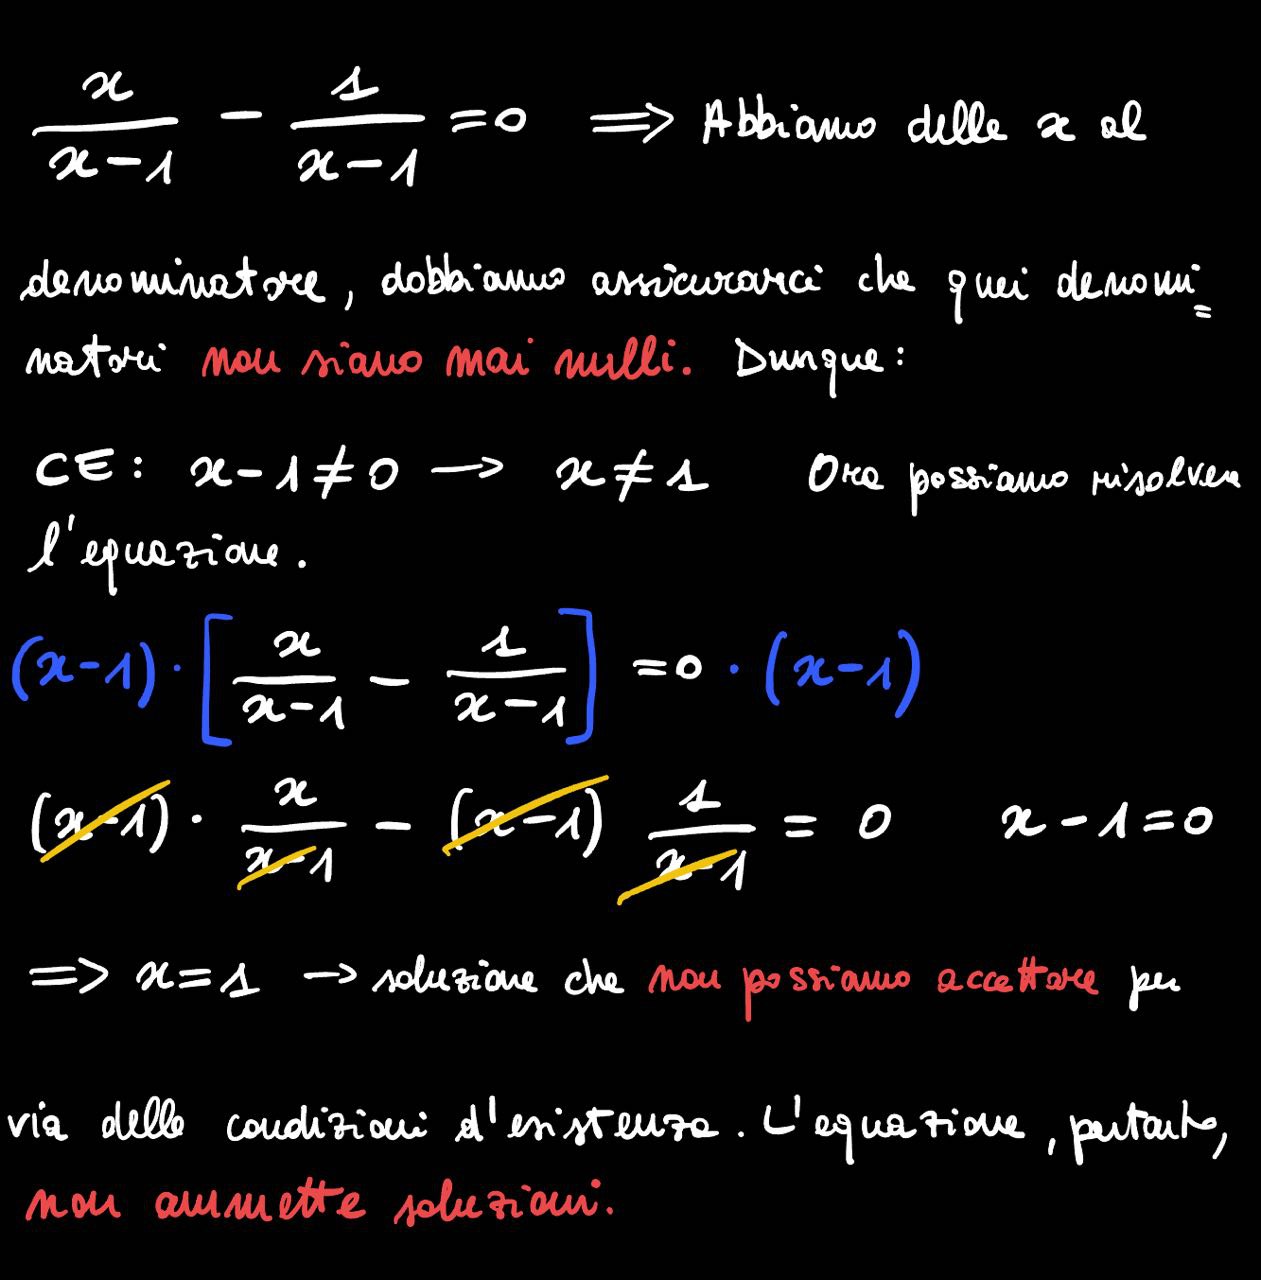 x/(x-1) - 1/(x-1) = 0 ⟹ Abbiamo delle x al
denominatore, dobbiamo assicurarci che quei denomi=
natori non siano mai nulli. Dunque:
CE: x-1≠0 → x≠1 Ora possiamo risolvere
l'equazione.
(x-1)·[x/(x-1) - 1/(x-1)] = 0·(x-1)
(x-1)·x/(x-1) - (x-1) 1/(x-1) = 0 x-1=0
⟹ x=1 → soluzione che non possiamo accettare per
via delle condizioni d'esistenza. L'equazione, pertanto,
non ammette soluzioni.